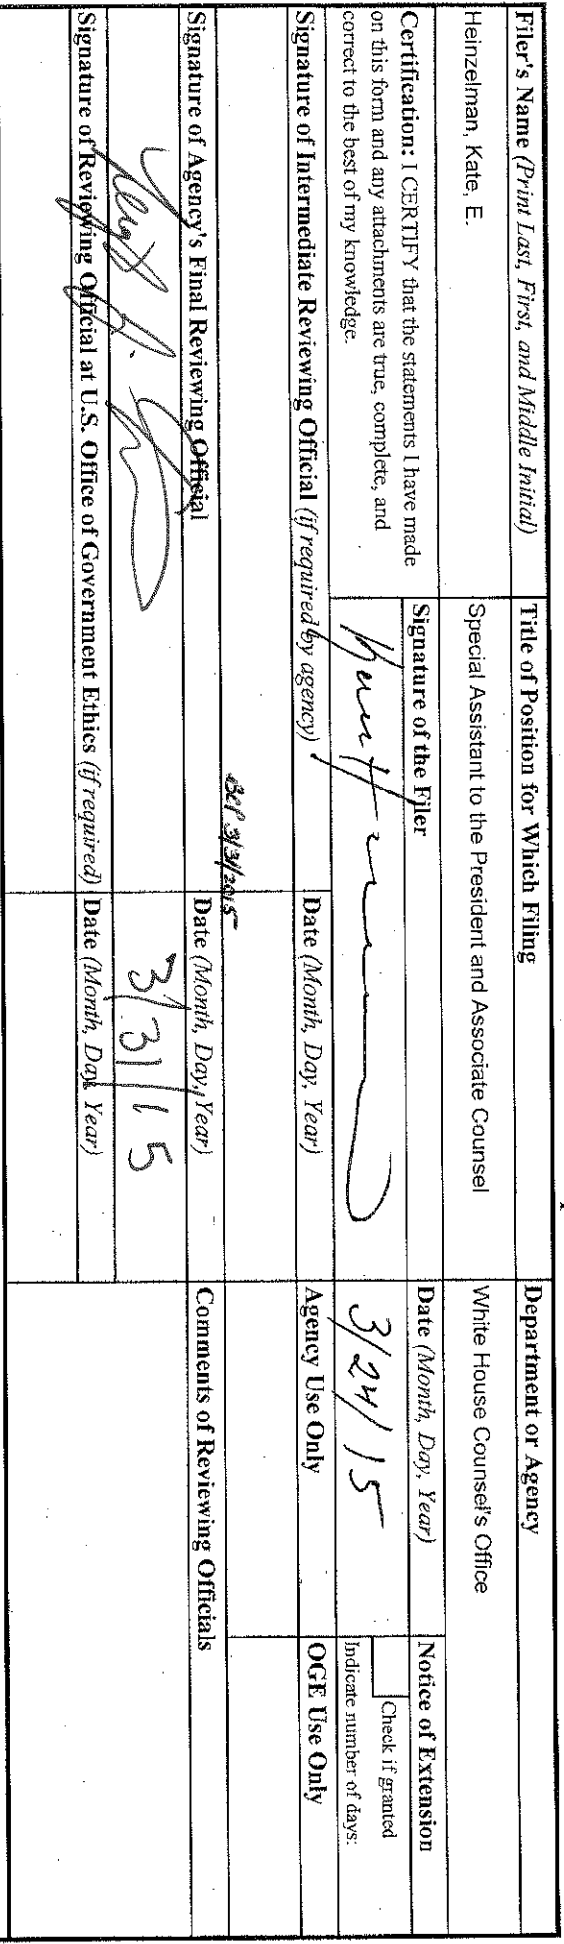 Filer's Name (Print Last, First, and Middle Initial)
Title of Position for Which Filing
Department or Agency
Heinzelman, Kate, E.
Special Assistant to the President and Associate Counsel
White House Counsel's Office
Certification: I CERTIFY that the statements I have made
on this form and any attachments are true, complete, and
correct to the best of my knowledge.
Signature of the Filer
Date (Month, Day, Year)
3/24/15
Notice of Extension
Check if granted
Indicate number of days:
Signature of Intermediate Reviewing Official (if required by agency)
Date (Month, Day, Year)
Agency Use Only
OGE Use Only
3/31/2015
Signature of Agency's Final Reviewing Official
Date (Month, Day, Year)
Comments of Reviewing Officials
3/31/15
Signature of Reviewing Official at U.S. Office of Government Ethics (if required)
Date (Month, Day, Year)